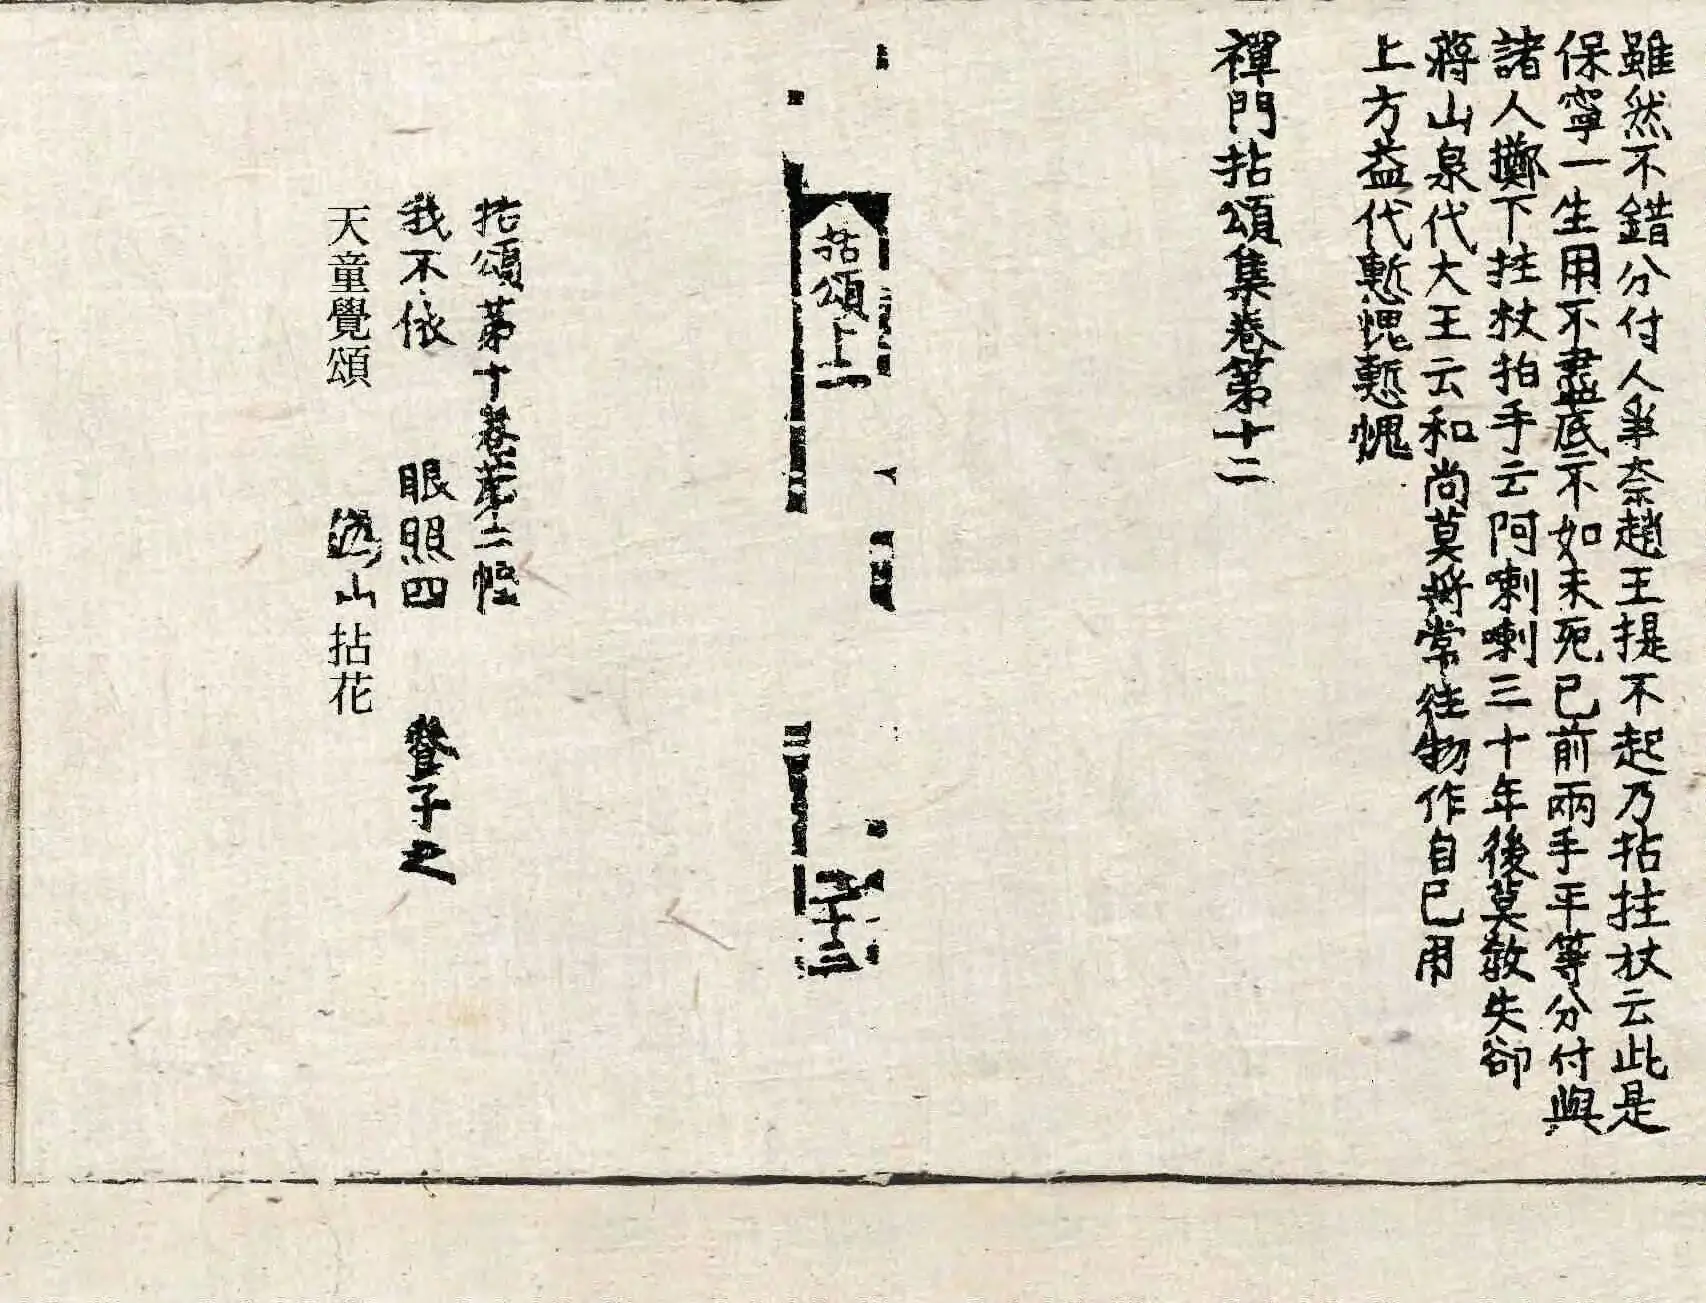 雖然不錯分付人爭奈趙王提不起乃拈拄杖云此是
保寧一生用不盡底不如未死已前兩手平等分付與
諸人擲下拄杖拍手云阿喇喇三十年後莫教失卻
蔣山泉代大王云和尚莫將常住物作自已用
上方益代慙愧慙愧
禪門拈頌集卷第十二
拈頌上
二十三
拈頌第十卷第十二
我不依 眼照四 登子之
天童覺頌 山拈花